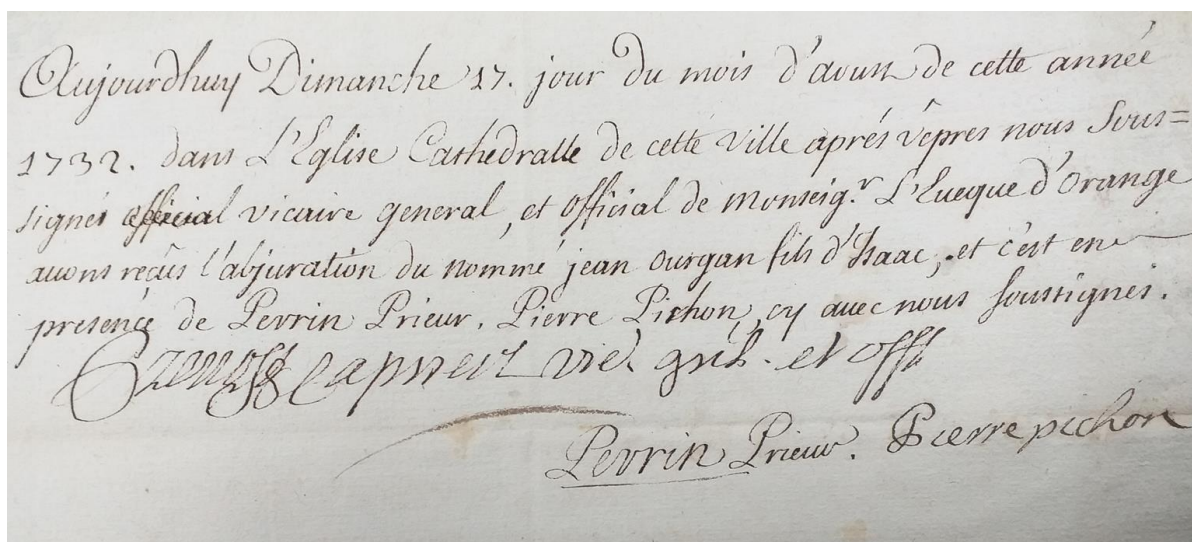 Aujourdhuy Dimanche 17. jour du mois d'aoust de cette année
1732. dans L'Eglise Cathedralle de cette Ville aprés vêpres nous Sous=
signés official vicaire general, et Official de Monseig.r L'Eveque d'Orange
avons reçûs l'abjuration du nommé jean Ourgan fils d'Isaac, et c'est en
presence de Perrin Prieur, Pierre Pichon, cy avec nous soussignés.
vic. gnl. et offl
Perrin Prieur. Pierre pichon